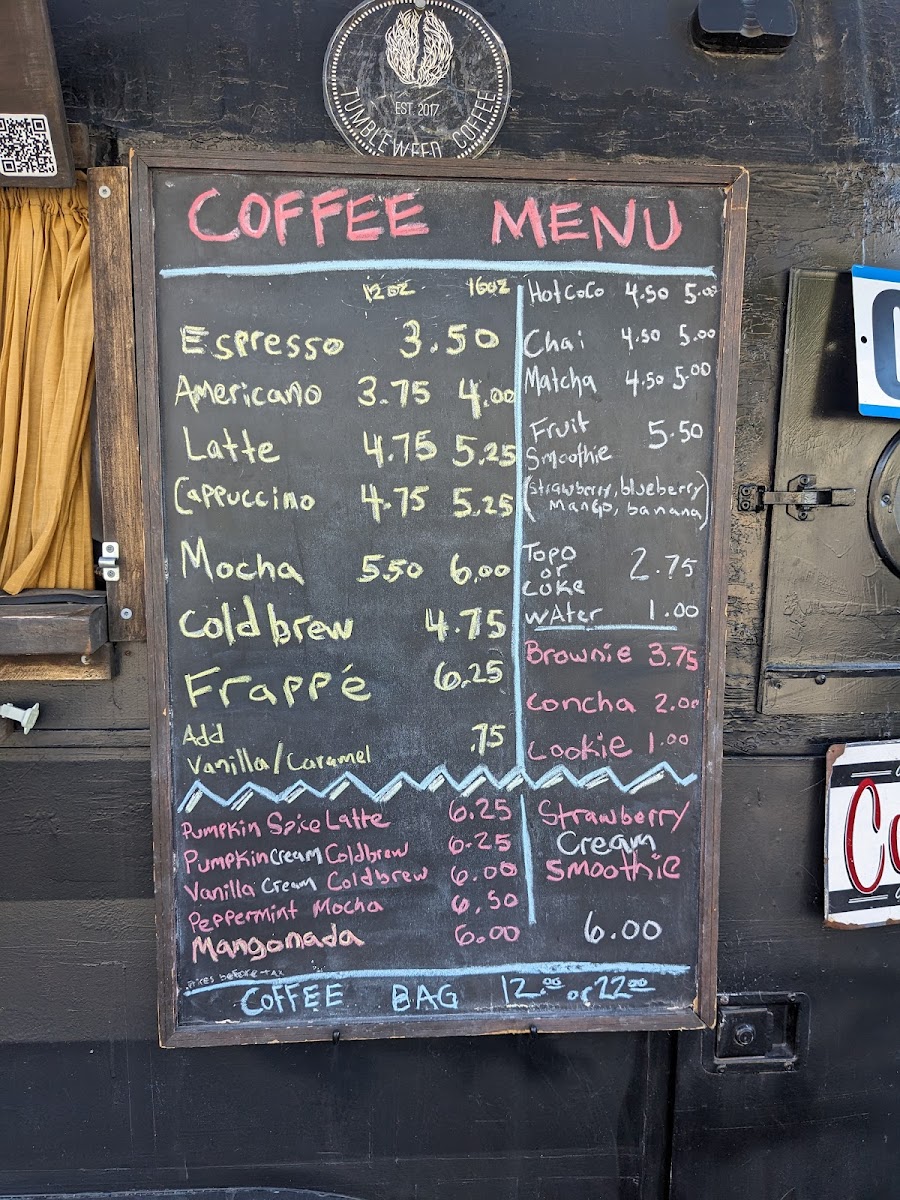 EST. 2017
TUMBLEWEED COFFEE
COFFEE MENU
12oz 16oz
Espresso 3.50
Americano 3.75 4.00
Latte 4.75 5.25
Cappuccino 4.75 5.25
Mocha 5.50 6.00
Cold brew 4.75
Frappé 6.25
Add .75
Vanilla/Caramel
Hot CoCo 4.50 5.00
Chai 4.50 5.00
Matcha 4.50 5.00
Fruit 5.50
Smoothie
(strawberry, blueberry
mango, banana)
Topo 2.75
or
Coke
WAter 1.00
Brownie 3.75
Concha 2.00
Cookie 1.00
Pumpkin Spice Latte 6.25
Pumpkin Cream Coldbrew 6.25
Vanilla Cream Coldbrew 6.00
Peppermint Mocha 6.50
Mangonada 6.00
Strawberry
Cream
Smoothie
6.00
prices before tax
COFFEE BAG 12.00 or 22.00